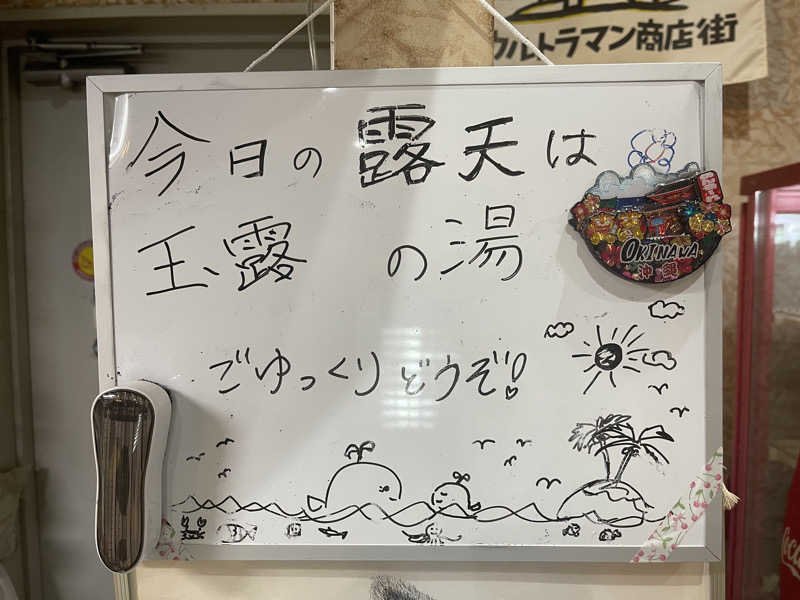 ウルトラマン商店街
今日の露天は
玉露 の湯
ごゆっくりどうぞ!
OKINAWA
沖縄